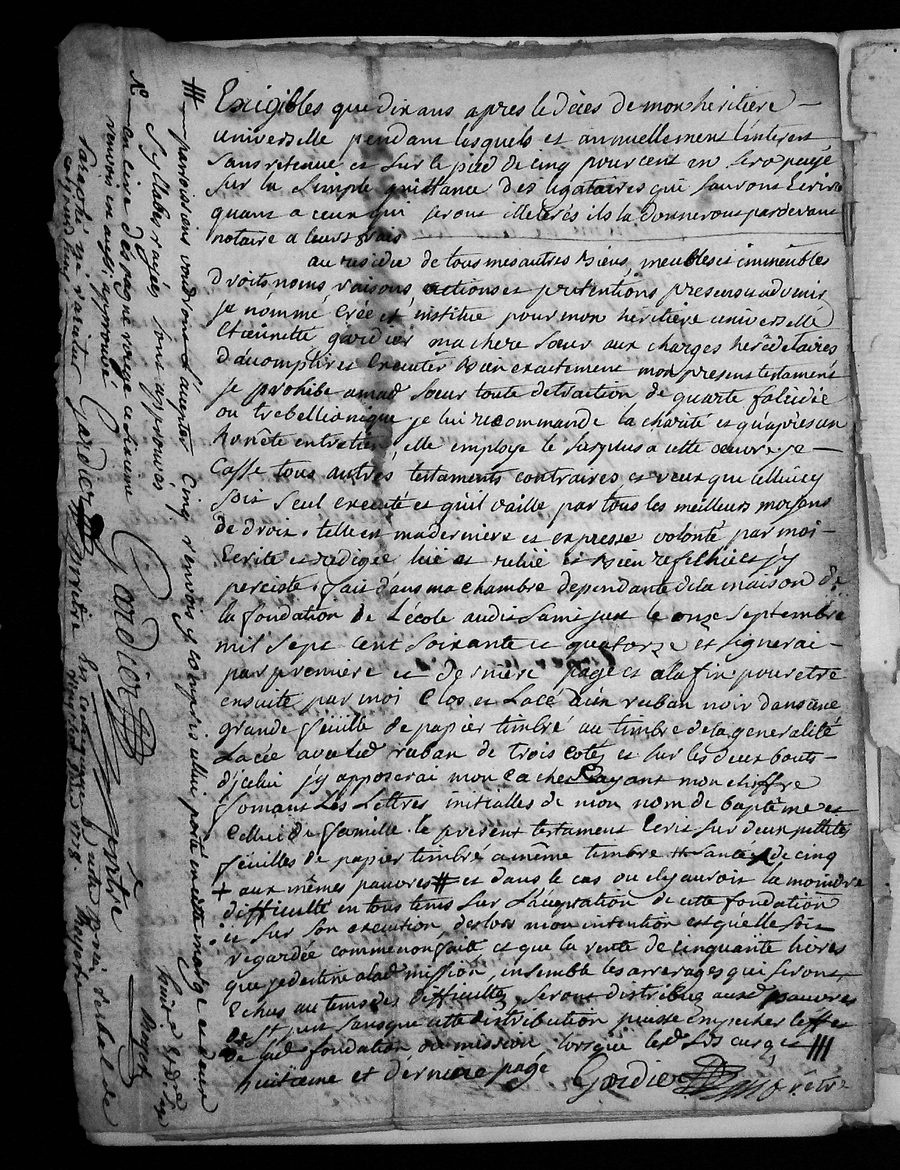 Exigibles que dix ans apres le déces de mon heritiere
universelle pendant lesquels et annuellement l'interest
sans retenue et sur le pied de cinq pour cent en sera payé
sur la simple quittance des légataires qui sauront Ecrire
quant a ceux qui seront illeterés ils la donneront pardevant
notaire a leurs frais
au residu de tous mes autres biens, meubles et immeubles
droits noms raisons actions et pretentions presens et advenir
je nomme Crée et institue pour mon heritiere universelle
Etiennette gardier ma chere sœur aux charges herédetaires
d'acomplir et Executer bien exactement mon present testament
je prohibe a mad sœur toute detraction de quarte falcidie
ou trebellianique je lui recommande la charité et qu'apres un
honéte entretien, elle employe le surplus a cette œuvre, je
Casse tous autres testaments contraires et veux que celluicy
soit seul executé et qu'il vaille par tous les meilleurs moyens
de droit. telle est ma derniere et expresse volonté par moi
Ecrite et redigée lüe et relüe et bien reflechie j'y
perciste. fait dans ma chambre dependante de la maison de
la fondation de l'école audit saint just le onze septembre
mil sept cent soixante et quatorze et signerai
par premiere et derniere page et a la fin pour etre
ensuite par moi Clos et Lacé d'un ruban noir dans une
grande feüille de papier timbré au timbre de la generalité
Lacée avec led ruban de trois cotés et sur les deux bouts
d'icelui j'y apposerai mon cachet ayant mon chiffre
formant les Lettres initialles de mon nom de baptéme et
Celui de famille. le present testament Ecrit sur deux petittes
feuilles de papier timbré a même timbre de cinq
+ aux mêmes pauvres # et dans le cas ou il y auroit la moindre
difficulté en tous tems sur l'acceptation de cette fondation
et sur son execution deslors mon intention est qu'elle soit
regardée comme non faite et que la rente de cinquante livres
que je destine a lad mission, ensemble les arrerages qui seront
Echus au tems des difficultés, seront distribués auxd pauvres
de st just sans que cette distribution puisse empecher l'effet
de lad fondation ou mission lorsque lesd srs curés #
huitieme et derniere page Gardier prêtre
# paroissiens voudront l'accepter Cinq renvois y compris celui porté en cette marge et deux
syllabes rayées sont approuvés Gardier prêtre